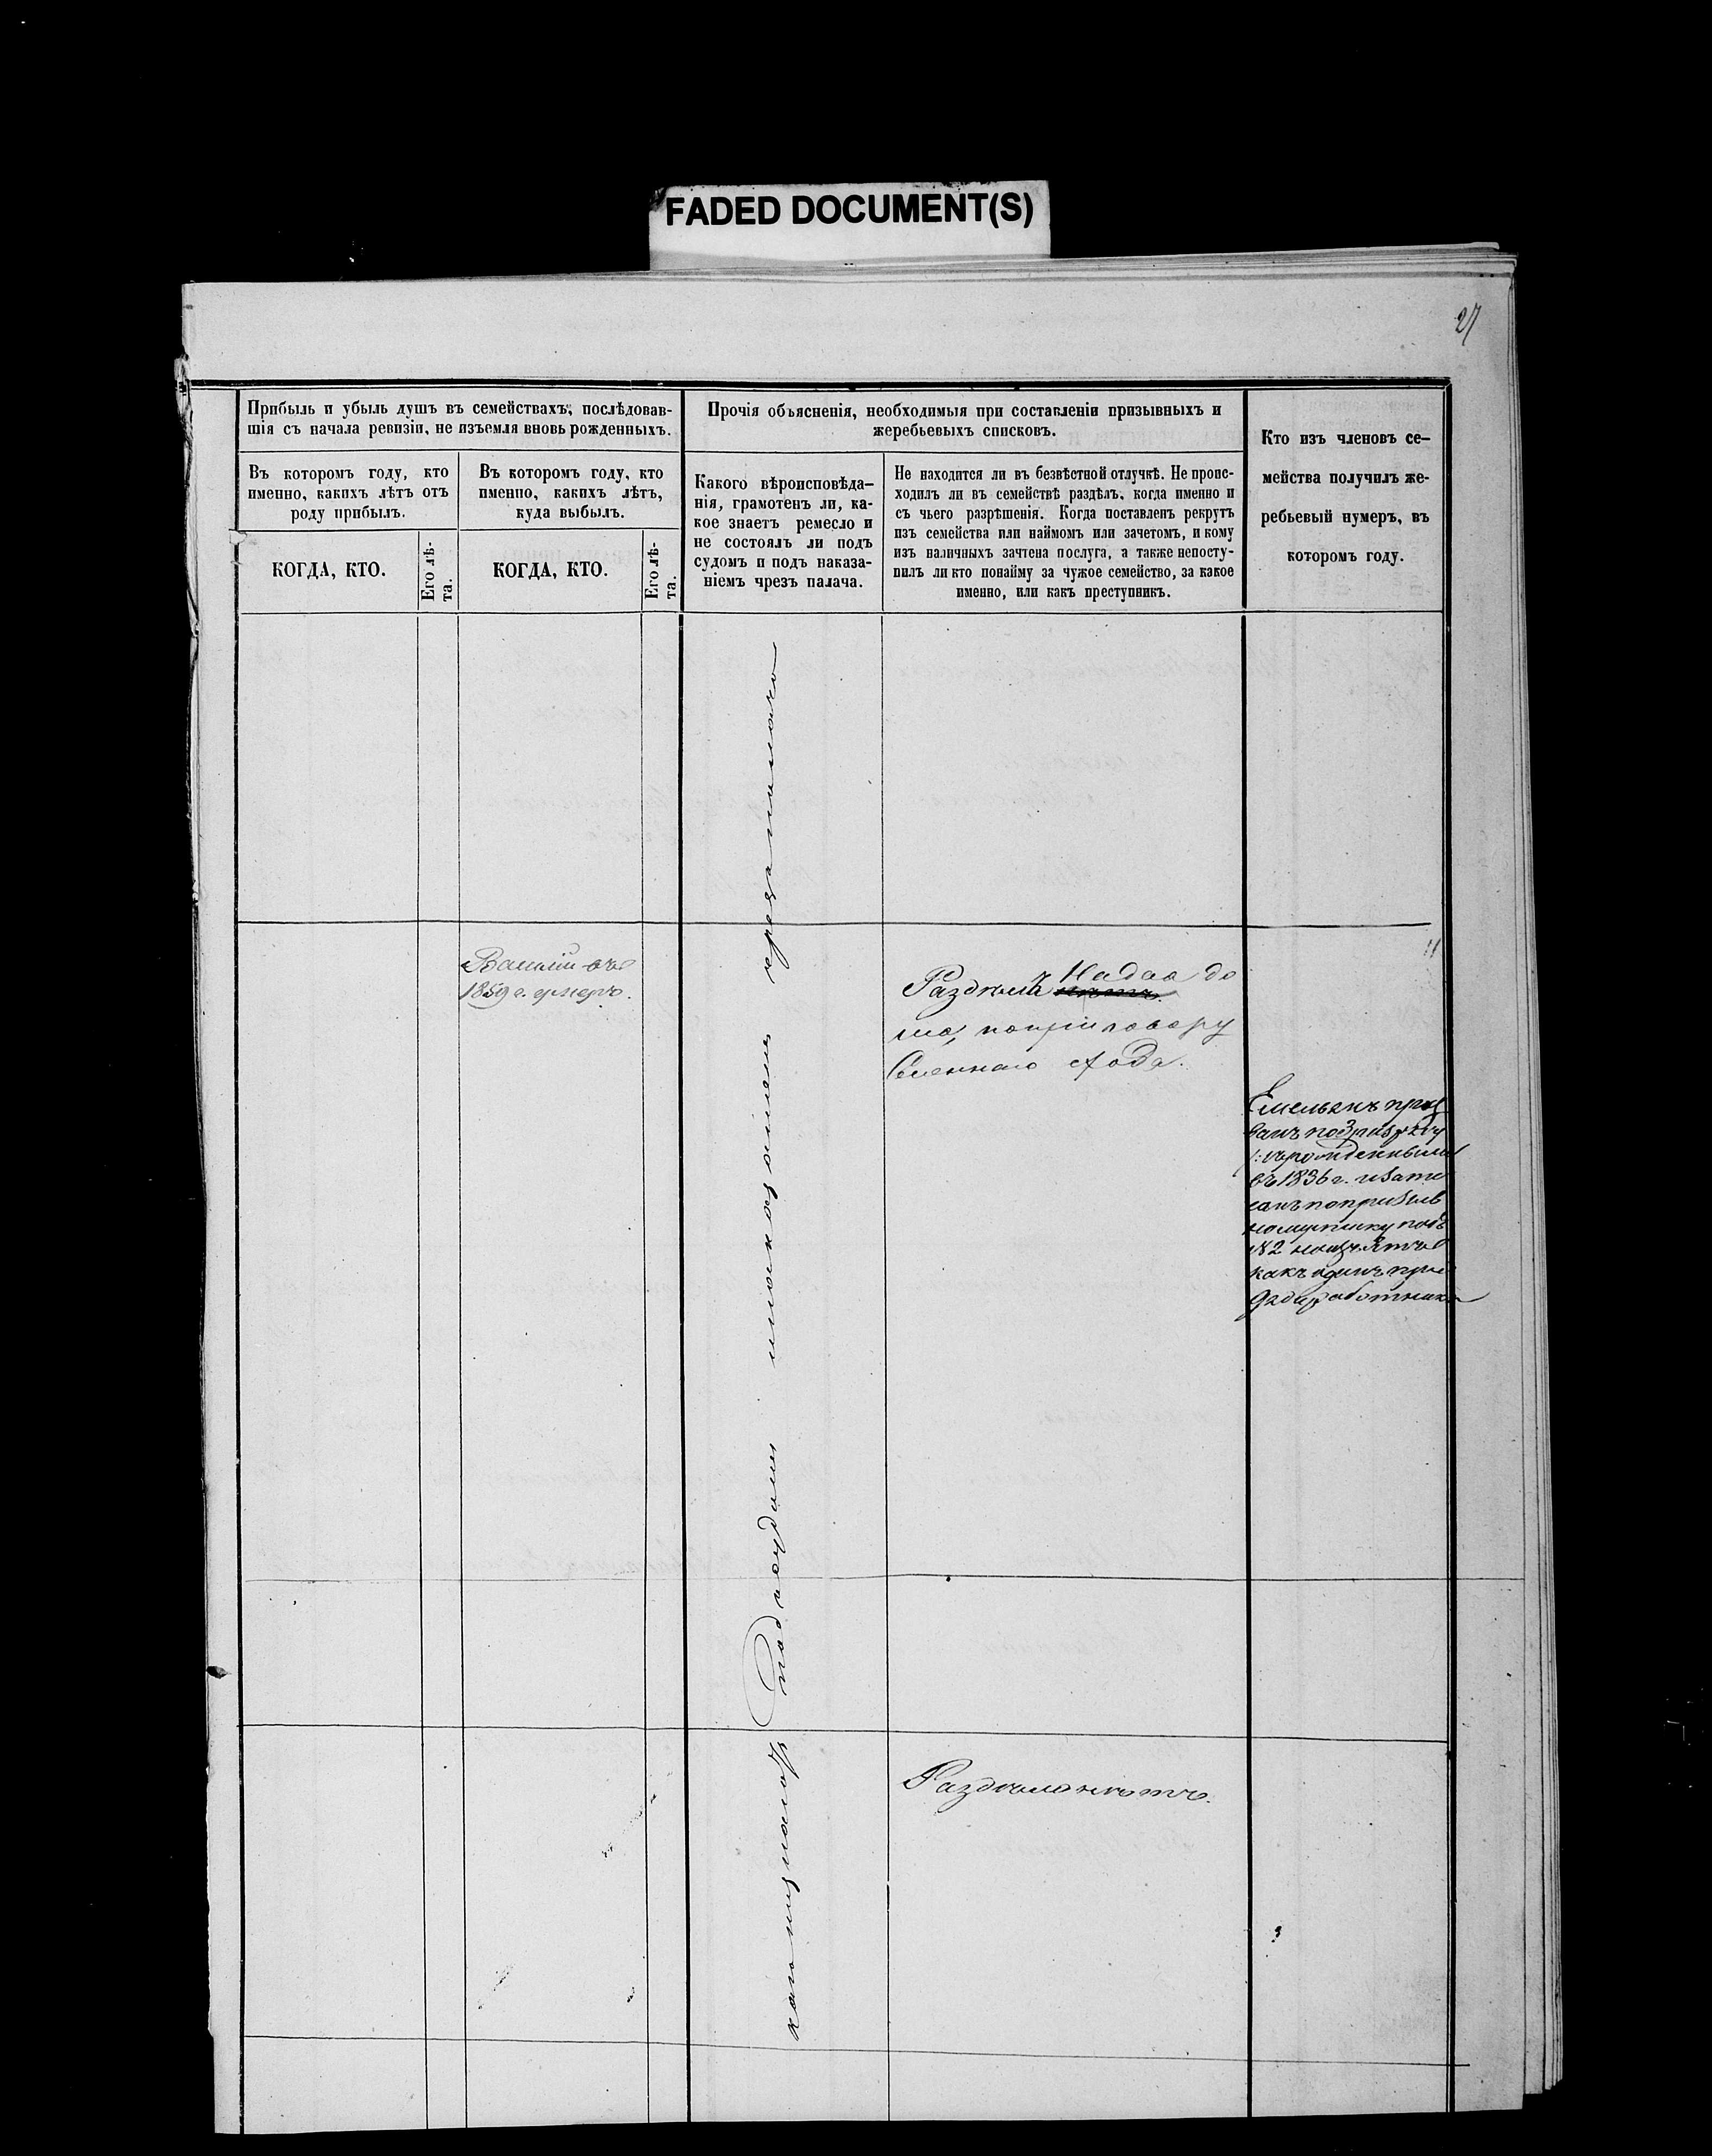 FADED DOCUMENT(S)
27
Прибыль и убыль душъ въ семействахъ, послѣдовав-
шія съ начала ревизіи, не изъемля вновь рожденныхъ.
Прочія объясненія, необходимыя при составленіи призывныхъ и
жеребьевыхъ списковъ.
Кто изъ членовъ се-
мейства получилъ же-
ребьевый нумеръ, въ
которомъ году.
Въ которомъ году, кто
именно, какихъ лѣтъ отъ
роду прибылъ.
Въ которомъ году, кто
именно, какихъ лѣтъ,
куда выбылъ.
Какого вѣроисповѣда-
нія, грамотенъ ли, ка-
кое знаетъ ремесло и
не состоялъ ли подъ
судомъ и подъ наказа-
ніемъ чрезъ палача.
Не находится ли въ безвѣстной отлучкѣ. Не проис-
ходилъ ли въ семействѣ раздѣлъ, когда именно и
съ чьего разрѣшенія. Когда поставленъ рекрутъ
изъ семейства или наймомъ или зачетомъ, и кому
изъ наличныхъ зачтена послуга, а также непосту-
пилъ ли кто понайму за чужое семейство, за какое
именно, или какъ преступникъ.
КОГДА, КТО.
Его лѣ-
та.
КОГДА, КТО.
Его лѣ-
та.
Василій въ
1859 г. умеръ.
Раздѣлъ На два до
ма, поприговору
Селеннаго схода.
Емельянъ приз
ванъ
рожденными
въ 1836 г.
№2
какъ одинъ при
работника
Подъ судомъ
Раздѣла нѣтъ.